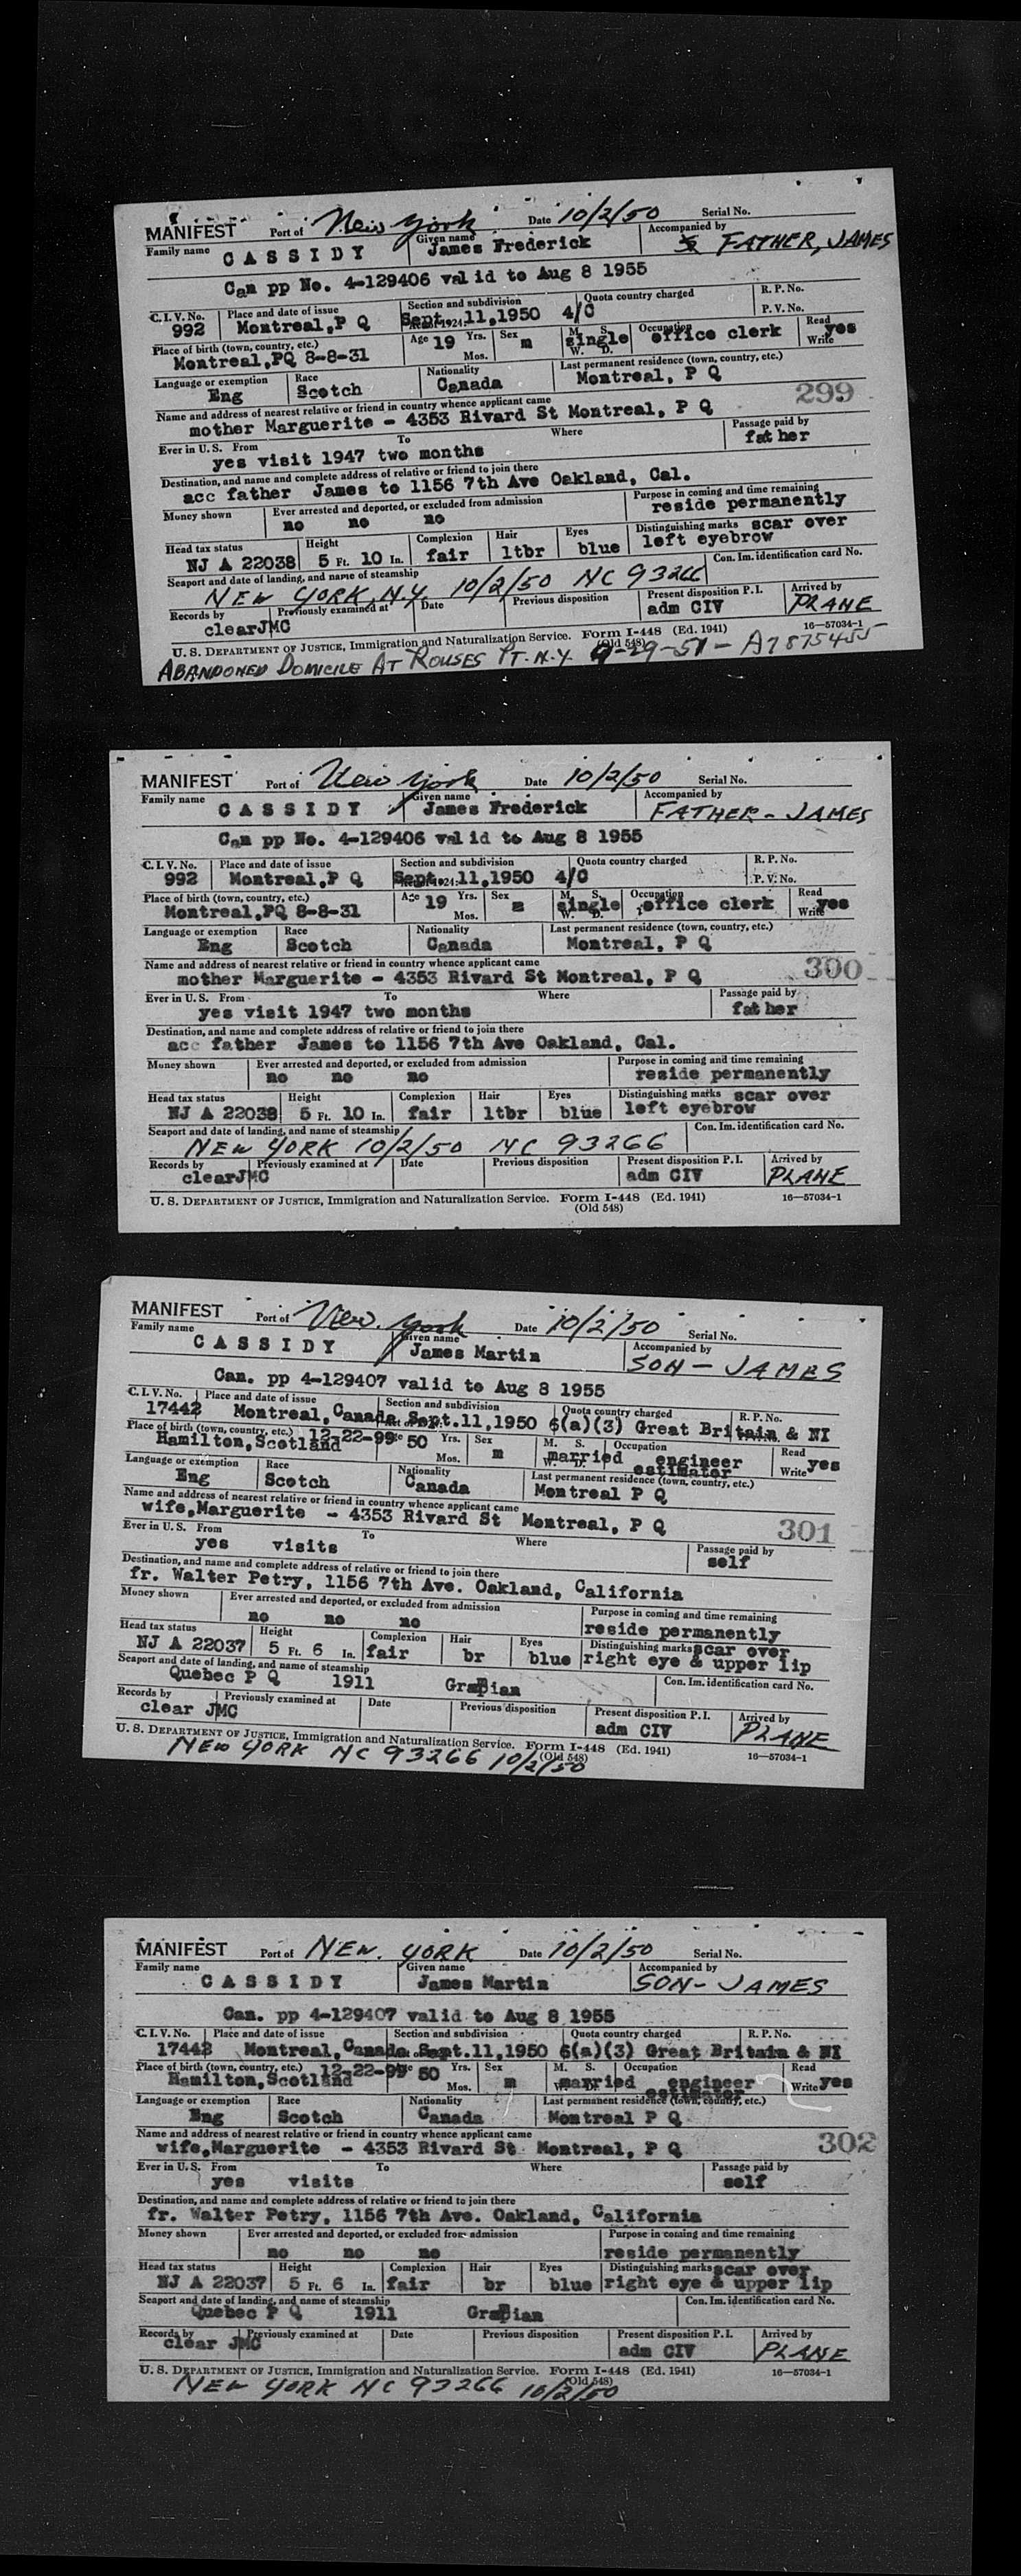 MANIFEST Port of New York Date 10/2/50 Serial No.
Family name CASSIDY Given name James Frederick Accompanied by FATHER, JAMES
Can pp No. 4-129406 valid to Aug 8 1955
C. I. V. No. 992 Place and date of issue Montreal, P Q Section and subdivision Sept. 11, 1950 4/C Quota country charged R. P. No. P. V. No.
Place of birth (town, country, etc.) Montreal, PQ 8-8-31 Age 19 Yrs. Mos. Sex m M. S. W. D. single Occupation office clerk Read Write yes
Language or exemption Eng Race Scotch Nationality Canada Last permanent residence (town, country, etc.) Montreal, P Q
299
Name and address of nearest relative or friend in country whence applicant came mother Marguerite - 4353 Rivard St Montreal, P Q
Ever in U. S. From To Where yes visit 1947 two months Passage paid by father
Destination, and name and complete address of relative or friend to join there acc father James to 1156 7th Ave Oakland, Cal.
Money shown Ever arrested and deported, or excluded from admission no no no Purpose in coming and time remaining reside permanently
Head tax status NJ A 22038 Height 5 Ft. 10 In. Complexion fair Hair ltbr Eyes blue Distinguishing marks scar over left eyebrow
Seaport and date of landing, and name of steamship NEW YORK, N.Y. 10/2/50 NC 93266 Con. Im. identification card No.
Records by clearJMC Previously examined at Date Previous disposition Present disposition P. I. adm CIV Arrived by PLANE
U. S. DEPARTMENT OF JUSTICE, Immigration and Naturalization Service. Form I-448 (Ed. 1941) (Old 548) 16—57034-1
ABANDONED DOMICILE AT ROUSES PT. N.Y. 9-29-51 - A7875455
MANIFEST Port of New York Date 10/2/50 Serial No.
Family name CASSIDY Given name James Frederick Accompanied by FATHER - JAMES
Can pp No. 4-129406 valid to Aug 8 1955
C. I. V. No. 992 Place and date of issue Montreal, P Q Section and subdivision Sept. 11, 1950 4/C Quota country charged R. P. No. P. V. No.
Place of birth (town, country, etc.) Montreal, PQ 8-8-31 Age 19 Yrs. Mos. Sex m M. S. W. D. single Occupation office clerk Read Write yes
Language or exemption Eng Race Scotch Nationality Canada Last permanent residence (town, country, etc.) Montreal, P Q
300
Name and address of nearest relative or friend in country whence applicant came mother Marguerite - 4353 Rivard St Montreal, P Q
Ever in U. S. From To Where yes visit 1947 two months Passage paid by father
Destination, and name and complete address of relative or friend to join there acc father James to 1156 7th Ave Oakland, Cal.
Money shown Ever arrested and deported, or excluded from admission no no no Purpose in coming and time remaining reside permanently
Head tax status NJ A 22038 Height 5 Ft. 10 In. Complexion fair Hair ltbr Eyes blue Distinguishing marks scar over left eyebrow
Seaport and date of landing, and name of steamship NEW YORK 10/2/50 NC 93266 Con. Im. identification card No.
Records by clearJMC Previously examined at Date Previous disposition Present disposition P. I. adm CIV Arrived by PLANE
U. S. DEPARTMENT OF JUSTICE, Immigration and Naturalization Service. Form I-448 (Ed. 1941) (Old 548) 16—57034-1
MANIFEST Port of New York Date 10/2/50 Serial No.
Family name CASSIDY Given name James Martin Accompanied by SON - JAMES
Can. pp 4-129407 valid to Aug 8 1955
C. I. V. No. 17442 Place and date of issue Montreal, Canada Section and subdivision Sept. 11, 1950 6(a)(3) Quota country charged Great Britain & NI R. P. No.
Place of birth (town, country, etc.) Hamilton, Scotland 12-22-99 Age 50 Yrs. Mos. Sex m M. S. W. D. married Occupation engineer estimator Read Write yes
Language or exemption Eng Race Scotch Nationality Canada Last permanent residence (town, country, etc.) Montreal P Q
301
Name and address of nearest relative or friend in country whence applicant came wife, Marguerite - 4353 Rivard St Montreal, P Q
Ever in U. S. From To Where yes visits Passage paid by self
Destination, and name and complete address of relative or friend to join there fr. Walter Petry, 1156 7th Ave. Oakland, California
Money shown Ever arrested and deported, or excluded from admission no no no Purpose in coming and time remaining reside permanently
Head tax status NJ A 22037 Height 5 Ft. 6 In. Complexion fair Hair br Eyes blue Distinguishing marks scar over right eye & upper lip
Seaport and date of landing, and name of steamship Quebec P Q 1911 Grapian Con. Im. identification card No.
Records by clear JMC Previously examined at Date Previous disposition Present disposition P. I. adm CIV Arrived by PLANE
U. S. DEPARTMENT OF JUSTICE, Immigration and Naturalization Service. Form I-448 (Ed. 1941) (Old 548) 16—57034-1
NEW YORK NC 93266 10/2/50
MANIFEST Port of NEW YORK Date 10/2/50 Serial No.
Family name CASSIDY Given name James Martin Accompanied by SON - JAMES
Can. pp 4-129407 valid to Aug 8 1955
C. I. V. No. 17442 Place and date of issue Montreal, Canada Section and subdivision Sept. 11, 1950 6(a)(3) Quota country charged Great Britain & NI R. P. No.
Place of birth (town, country, etc.) Hamilton, Scotland 12-22-99 Age 50 Yrs. Mos. Sex m M. S. W. D. married Occupation engineer estimator Read Write yes
Language or exemption Eng Race Scotch Nationality Canada Last permanent residence (town, country, etc.) Montreal P Q
302
Name and address of nearest relative or friend in country whence applicant came wife, Marguerite - 4353 Rivard St Montreal, P Q
Ever in U. S. From To Where yes visits Passage paid by self
Destination, and name and complete address of relative or friend to join there fr. Walter Petry, 1156 7th Ave. Oakland, California
Money shown Ever arrested and deported, or excluded from admission no no no Purpose in coming and time remaining reside permanently
Head tax status NJ A 22037 Height 5 Ft. 6 In. Complexion fair Hair br Eyes blue Distinguishing marks scar over right eye & upper lip
Seaport and date of landing, and name of steamship Quebec P Q 1911 Grapian Con. Im. identification card No.
Records by clear JMC Previously examined at Date Previous disposition Present disposition P. I. adm CIV Arrived by PLANE
U. S. DEPARTMENT OF JUSTICE, Immigration and Naturalization Service. Form I-448 (Ed. 1941) (Old 548) 16—57034-1
NEW YORK NC 93266 10/2/50